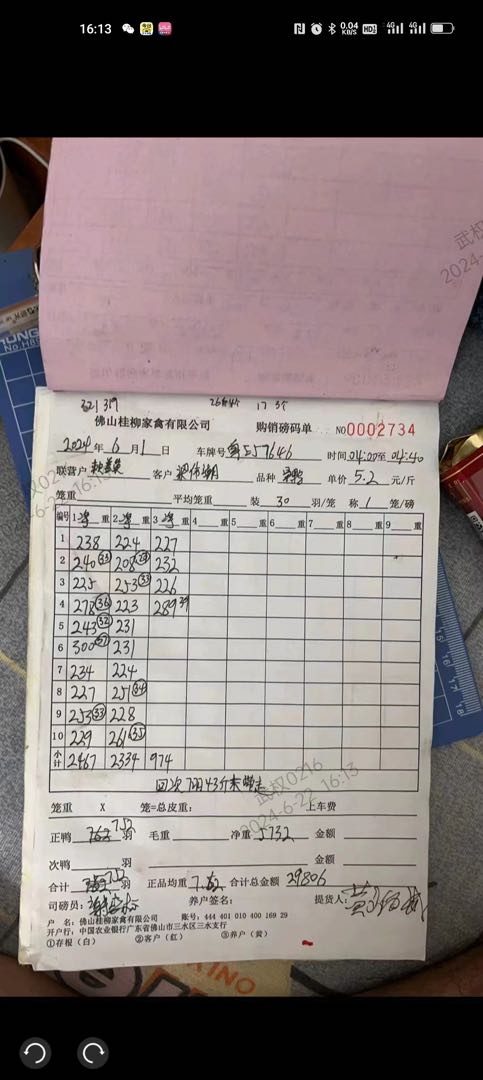 16:13
0.04 KB/S HD 4G 4G
武权
2024-
321 319
17 3个
佛山桂柳家禽有限公司 购销磅码单 NO0002734
2024年 6 月 1 日 车牌号 粤E57646 时间 04:00至 04:40
联营户 客户 品种 单价 5.2 元/斤
笼重 平均笼重 装 30 羽/笼 称 1 笼/磅
编号 1 净 重 2 净 重 3 净 重 4 重 5 重 6 重 7 重 8 重 9 重
1 238 224 227
2 240 208 232
3 225 253 33 226
4 278 36 223 289 39
5 243 32 231
6 300 231
7 234 224
8 227 251 34
9 253 33 228
10 229 261 35
小计 2467 2334 974
43斤
武权0216
2024-6-22 16:13
笼重 X 笼=总皮重: 上车费
正鸭 762 752 羽 毛重 净重 5732 金额
次鸭 羽 金额
合计 752 羽 正品均重 7.62 合计总金额 29806
司磅员: 养户签名: 提货人:
户 名: 佛山桂柳家禽有限公司 账号: 444 401 010 400 169 29
开户行: 中国农业银行广东省佛山市三水区三水支行
①存根(白) ②客户(红) ③养户(黄)